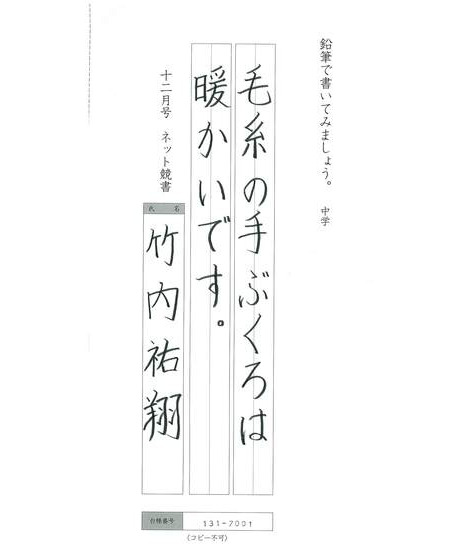 鉛筆で書いてみましょう。 中学
毛糸の手ぶくろは
暖かいです。
十二月号 ネット競書
氏名
竹内祐翔
台帳番号 131-7001
(コピー不可)